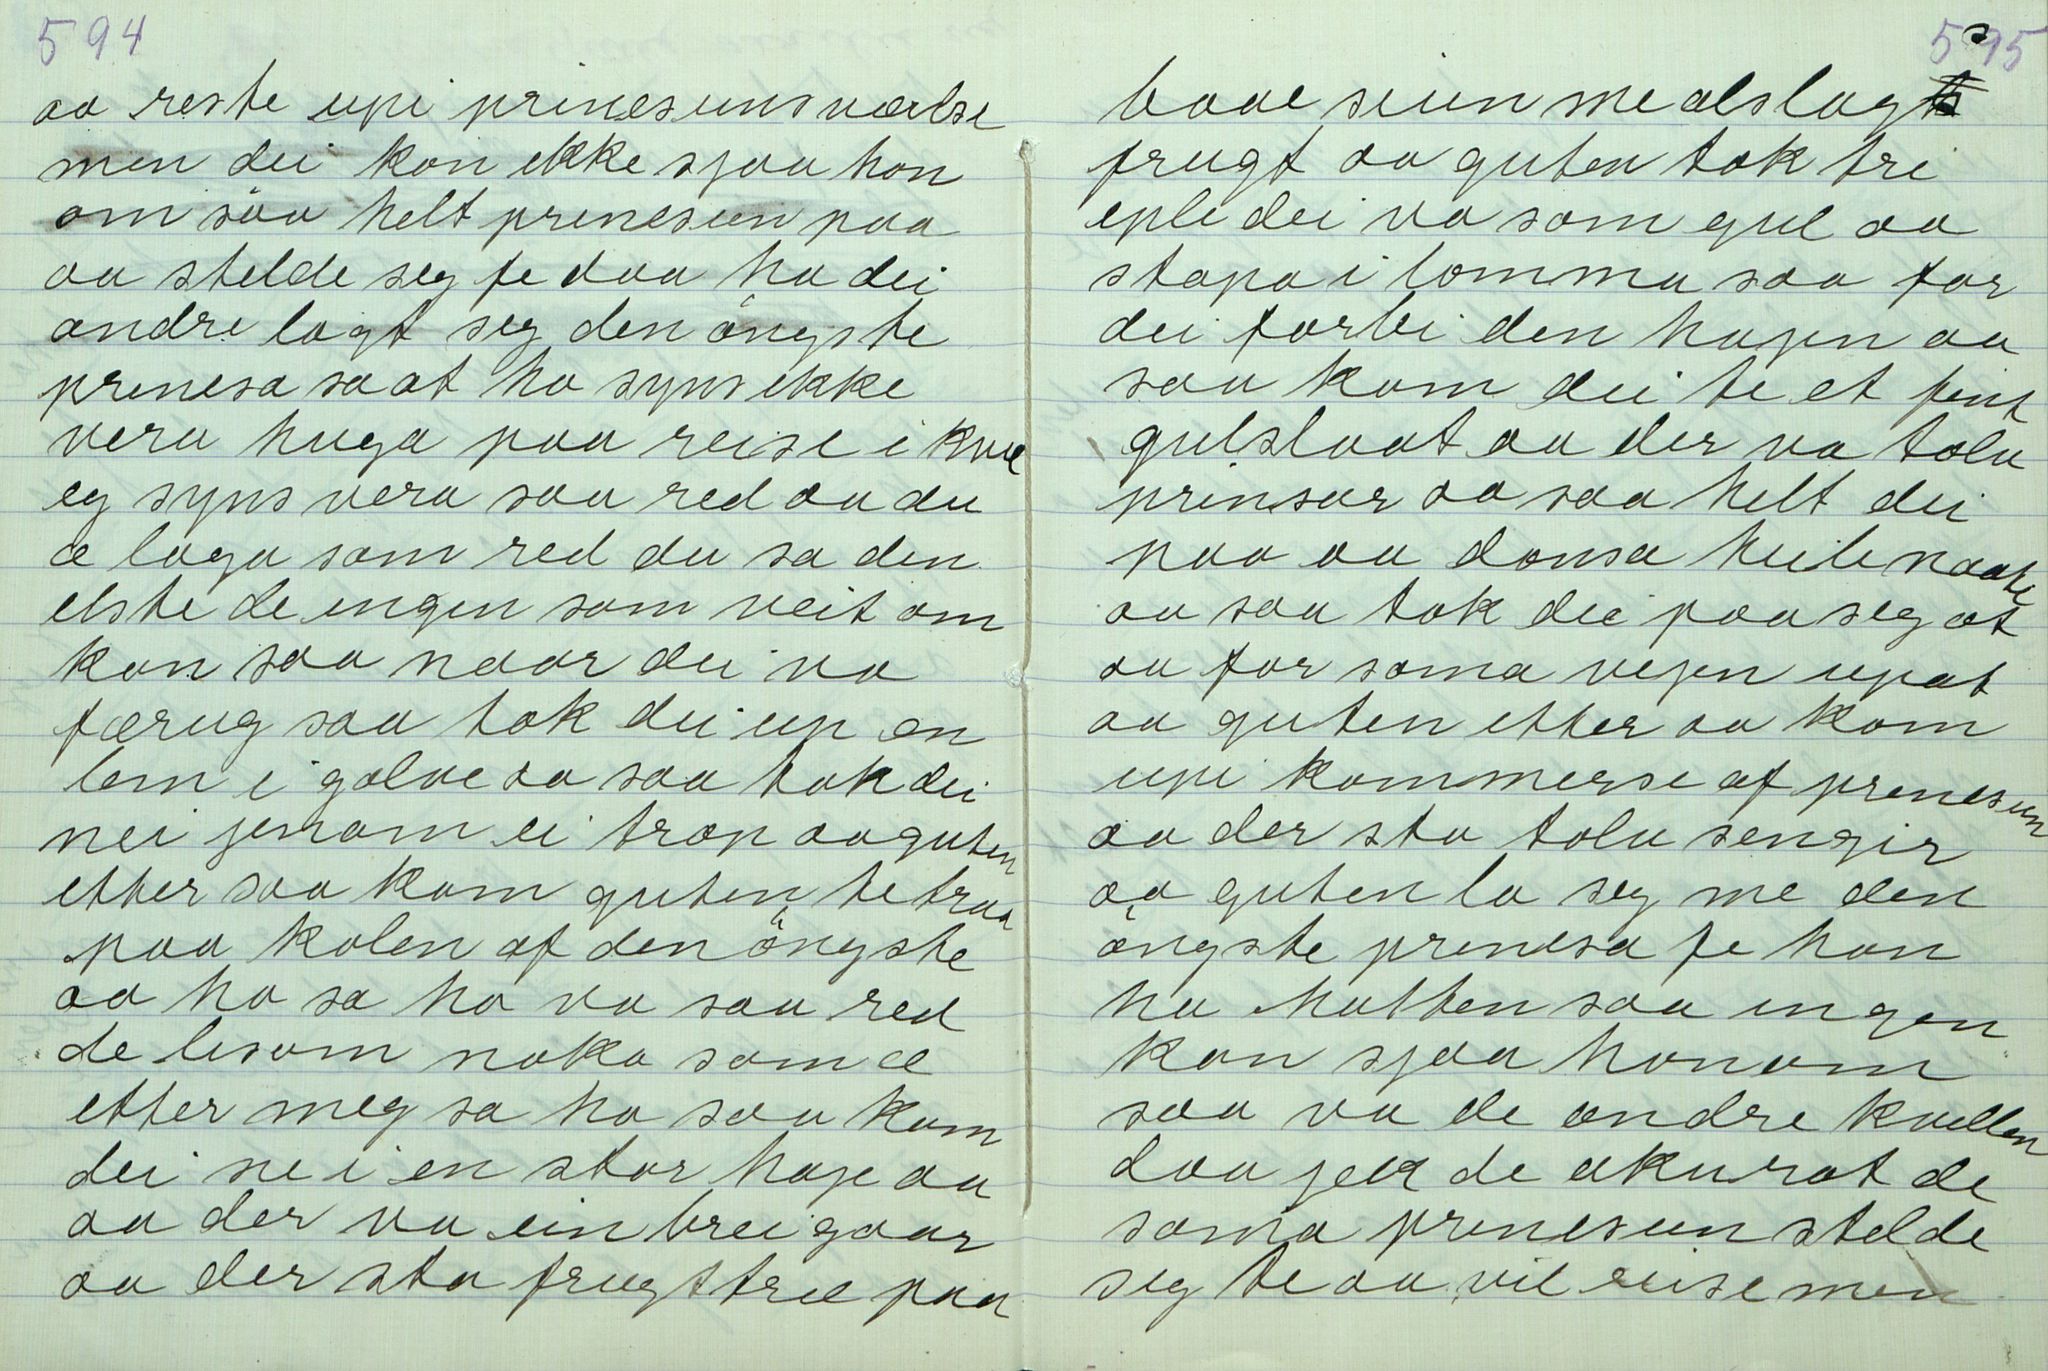 594
aa reste upi prinesunsværelse
men dei kon ikke sjaa hon
om saa helt prinesun paa
aa stelde seg fe daa ha dei
andre lagt seg den öngste
prinesa sa at ho syns ikke
vera huga paa reise i kvel
eg syns vera saa red aa du
æ laga som red du sa den
elste de ingen som veit om
kon saa naar dei va
færug saa tok dei up en
lem i golve aa saa tok dei
nei jenom ei trap aa guten
etter saa kom guten te traa
paa kolen af den öngste
aa ho sa ho va saa red
de lisom noko som æ
etter meg sa ho saa kom
dei ne i en stor hage aa
aa der va ein brei gaar
aa der sto frugttræ paa
595
baae seien me alslags
frugt aa guten tok tri
eple dei va som gul aa
stapa i lomma saa for
dei forbi den hagen aa
saa kom dei te et fint
gulslaat aa der va tolv
prinsar aa saa helt dei
paa aa donsa heile naate
aa saa tok dei paa seg at
aa for soma vejen upat
aa guten etter aa kom
upi kommerse af prinesun
aa der sto tolv sengir
aa guten la seg me den
öngste prinesa fe hon
ha hatten saa ingen
kon sjaa honom
saa va de andre kvellen
daa jek de akurat de
soma prinesun stelde
seg te aa vil reise men